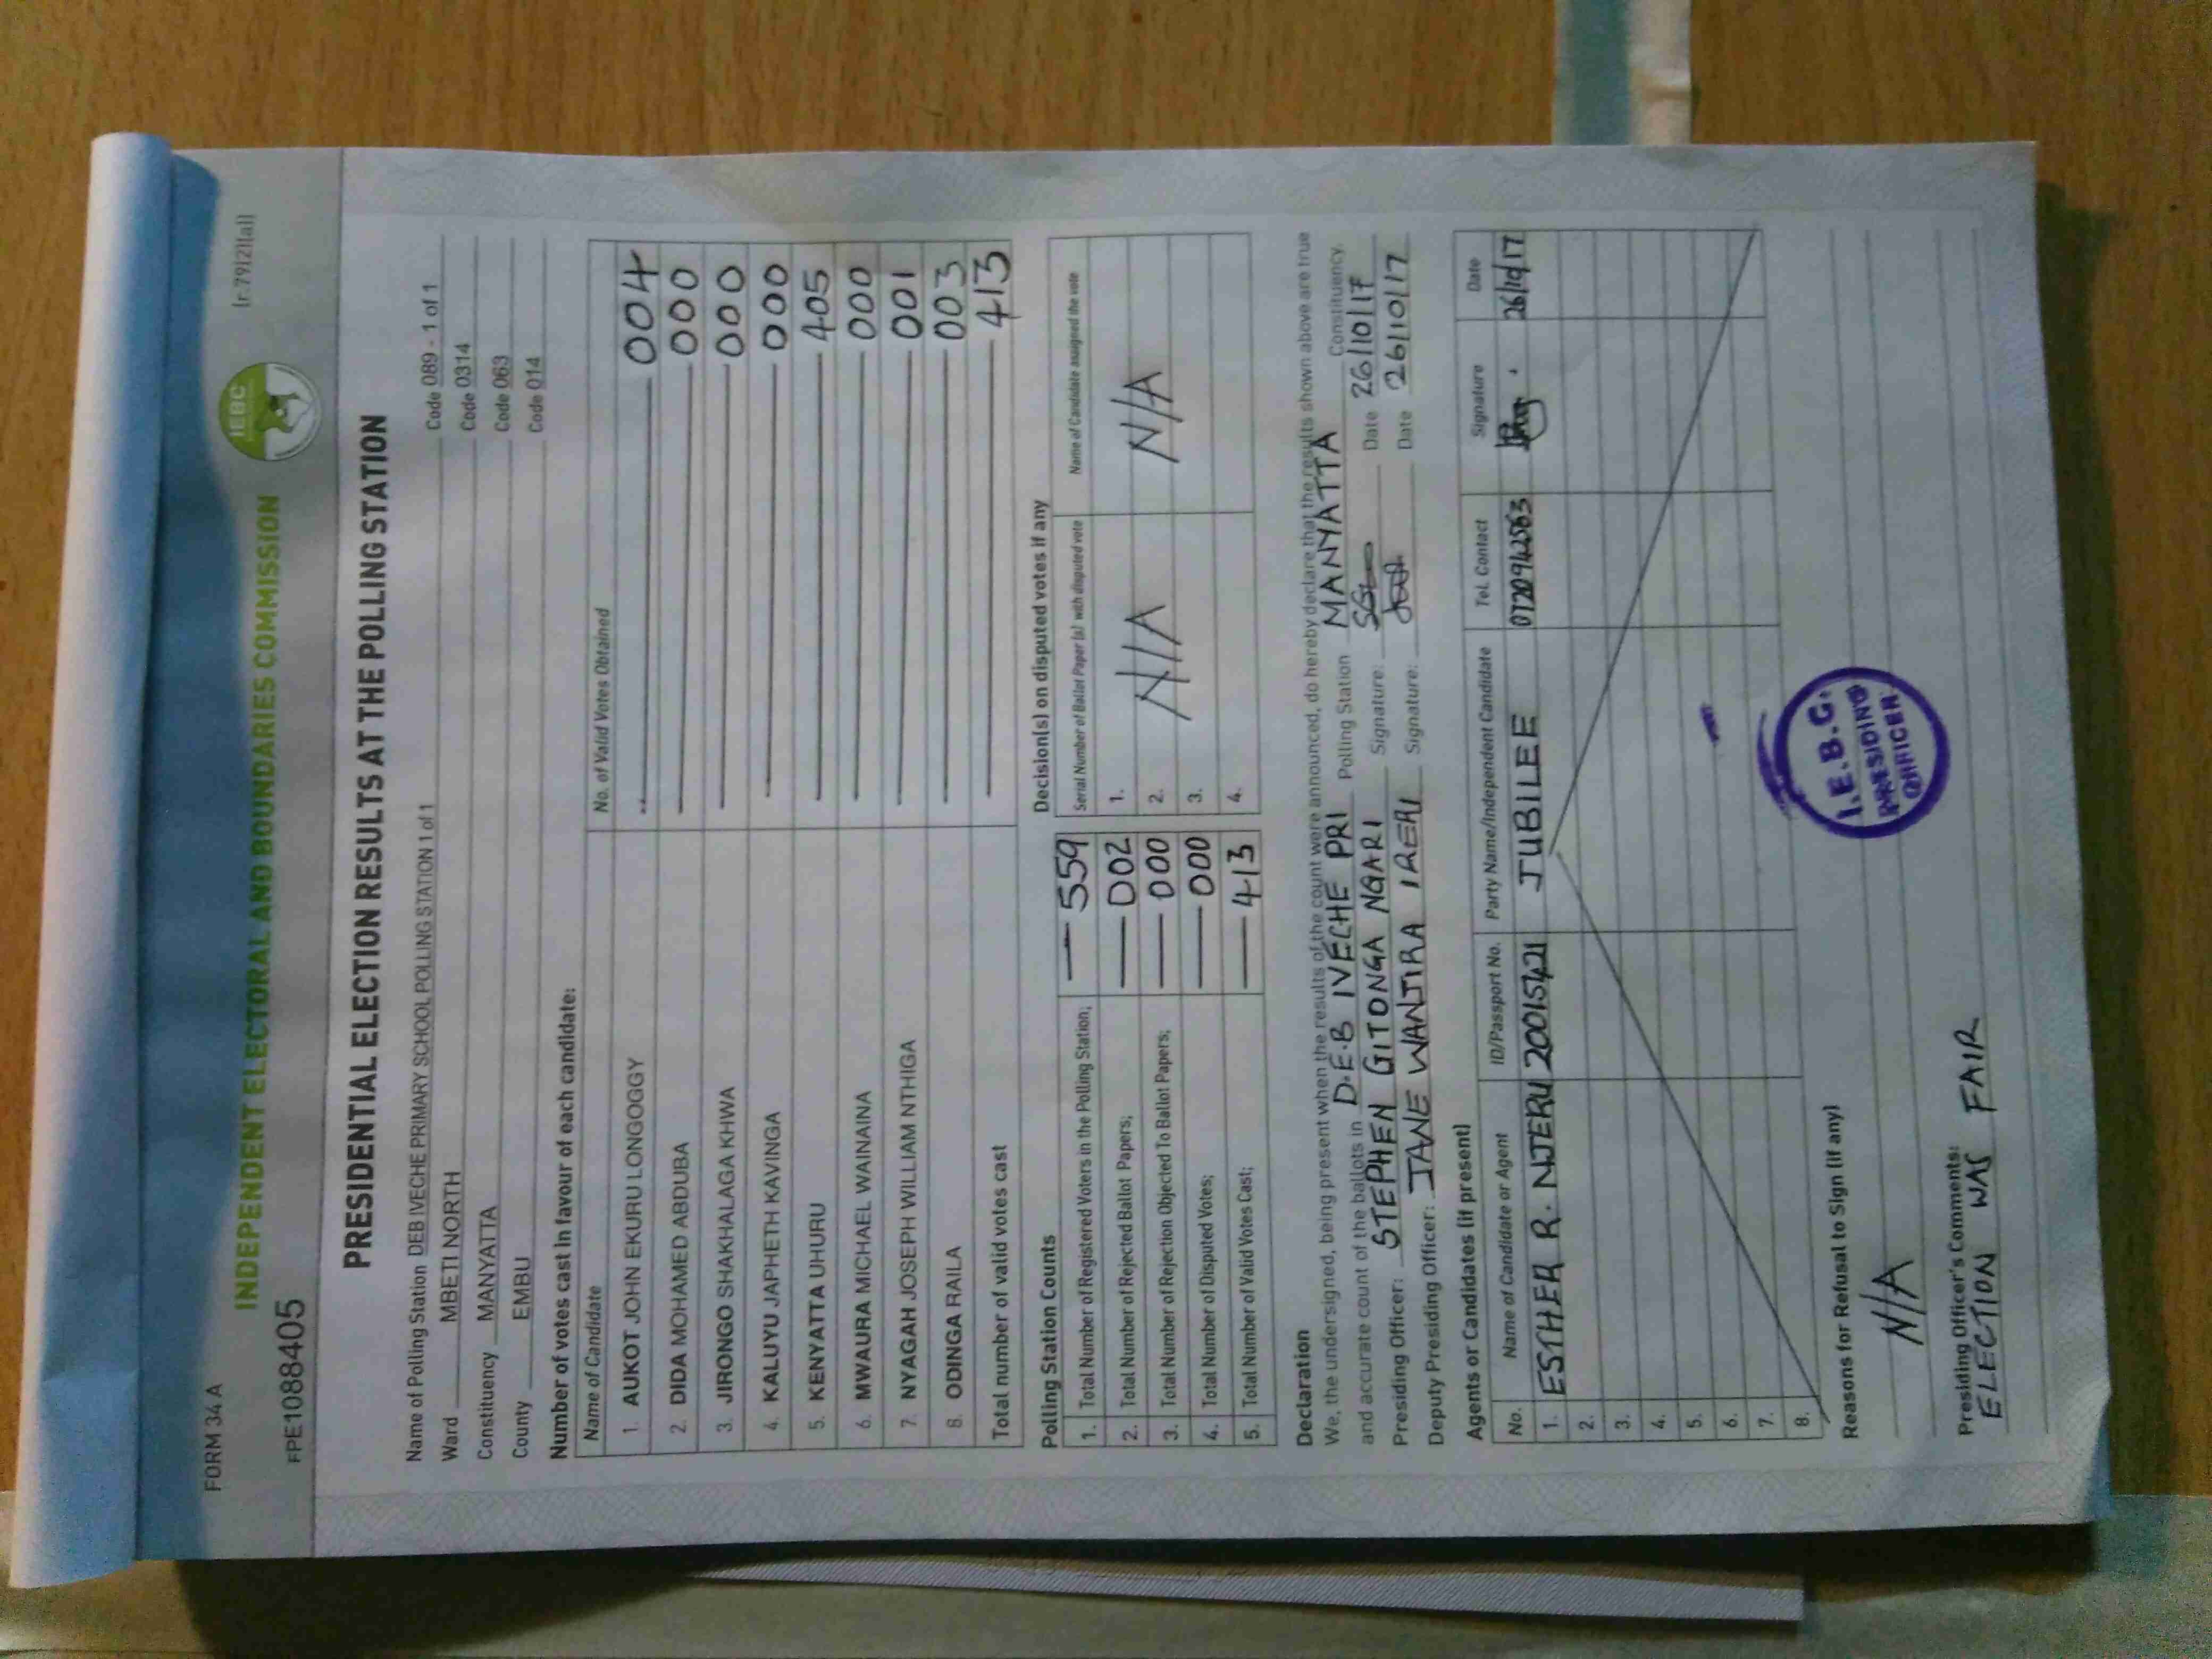 FORM 34 A
IEBC
[r.79(2)(a)]
INDEPENDENT ELECTORAL AND BOUNDARIES COMMISSION
FPE1088405
PRESIDENTIAL ELECTION RESULTS AT THE POLLING STATION
Name of Polling Station DEB IVECHE PRIMARY SCHOOL POLLING STATION 1 of 1 Code 089 - 1 of 1
Ward MBETI NORTH Code 0314
Constituency MANYATTA Code 063
County EMBU Code 014
Number of votes cast in favour of each candidate:
Name of Candidate No. of Valid Votes Obtained
1. AUKOT JOHN EKURU LONGOGGY 004
2. DIDA MOHAMED ABDUBA 000
3. JIRONGO SHAKHALAGA KHWA 000
4. KALUYU JAPHETH KAVINGA 000
5. KENYATTA UHURU 405
6. MWAURA MICHAEL WAINAINA 000
7. NYAGAH JOSEPH WILLIAM NTHIGA 001
8. ODINGA RAILA 003
Total number of valid votes cast 413
Polling Station Counts
1. Total Number of Registered Voters in the Polling Station; 559
2. Total Number of Rejected Ballot Papers; 002
3. Total Number of Rejection Objected To Ballot Papers; 000
4. Total Number of Disputed Votes; 000
5. Total Number of Valid Votes Cast; 413
Decision(s) on disputed votes if any
Serial Number of Ballot Paper (s) with disputed vote Name of Candidate assigned the vote
1.
2. N/A N/A
3.
4.
Declaration
We, the undersigned, being present when the results of the count were announced, do hereby declare that the results shown above are true
and accurate count of the ballots in D.E.B IVECHE PRI Polling Station MANYATTA Constituency.
Presiding Officer: STEPHEN GITONGA NGARI Signature: Date 26/10/17
Deputy Presiding Officer: JANE WANJIRA IRERI Signature: Date 26/10/17
Agents or Candidates (if present)
No. Name of Candidate or Agent ID/Passport No. Party Name/Independent Candidate Tel. Contact Signature Date
1. ESTHER R. NJERU 20015421 JUBILEE 0720942563 26/10/17
2.
3.
4.
5.
6.
7.
8.
Reasons for Refusal to Sign (if any)
N/A
I.E.B.C.
PRESIDING
OFFICER
Presiding Officer's Comments:
ELECTION WAS FAIR